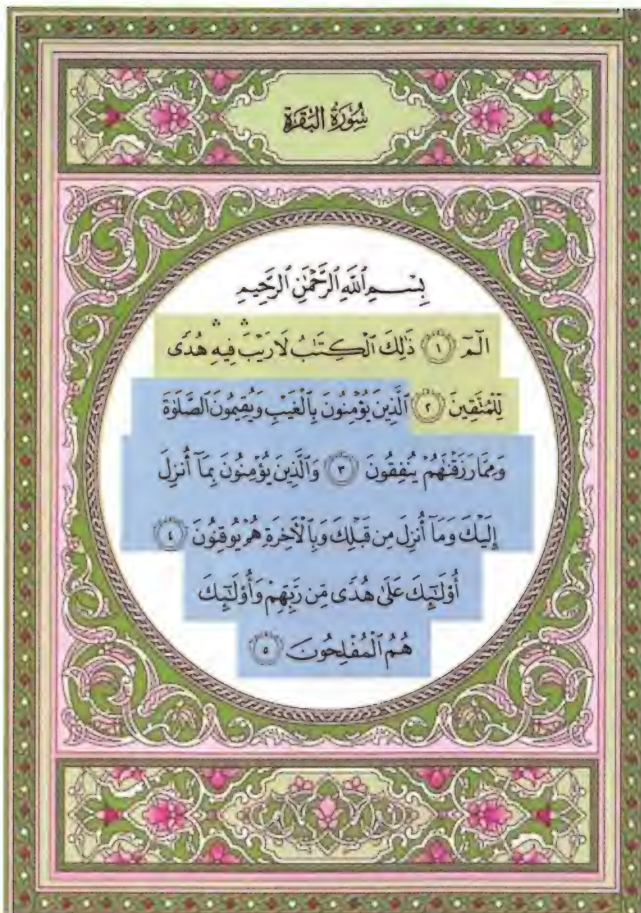 سُورَةُ البَقَرَةِ
بِسْمِ ٱللَّهِ ٱلرَّحْمَٰنِ ٱلرَّحِيمِ
الٓمٓ ۝١ ذَٰلِكَ ٱلْكِتَٰبُ لَا رَيْبَۛ فِيهِۛ هُدًى
لِّلْمُتَّقِينَ ۝٢ ٱلَّذِينَ يُؤْمِنُونَ بِٱلْغَيْبِ وَيُقِيمُونَ ٱلصَّلَوٰةَ
وَمِمَّا رَزَقْنَٰهُمْ يُنفِقُونَ ۝٣ وَٱلَّذِينَ يُؤْمِنُونَ بِمَآ أُنزِلَ
إِلَيْكَ وَمَآ أُنزِلَ مِن قَبْلِكَ وَبِٱلْءَاخِرَةِ هُمْ يُوقِنُونَ ۝٤
أُو۟لَٰٓئِكَ عَلَىٰ هُدًى مِّن رَّبِّهِمْ وَأُو۟لَٰٓئِكَ
هُمُ ٱلْمُفْلِحُونَ ۝٥